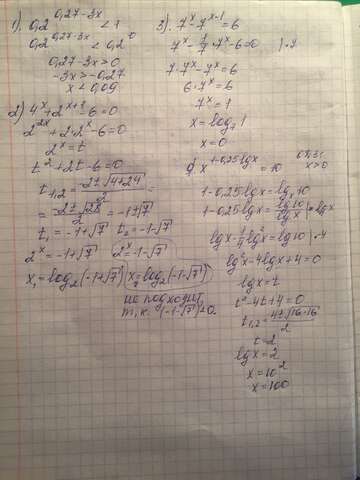 1). 0,2^{0,27-3x} < 1
0,2^{0,27-3x} < 0,2^0
0,27-3x>0
-3x>-0,27
x<0,09
2) 4^x+2^{x+1}-6=0
2^{2x}+2·2^x-6=0
2^x=t
t²+2t-6=0
t_{1,2}=\frac{-2±√4+24}{2}=
=\frac{-2±√28}{2}=-1±√7
t_1=-1+√7 t_2=-1-√7
2^x=-1+√7 2^x=-1-√7
x_1=log_2(-1+√7) x_2=log_2(-1-√7)
не подходит,
т.к. (-1-√7)<0.
3). 7^x-7^{x-1}=6
7^x-\frac{1}{7}·7^x-6=0 |·7
7·7^x-7^x=6
6·7^x=6
7^x=1
x=log_7 1
x=0
x^{1-0,25lgx}=10
x>0
1-0,25lgx=log_x10
1-0,25lgx=\frac{lg10}{lgx} |·lgx
lgx-\frac{1}{4}lg²x=lg10 |·4
lg²x-4lgx+4=0
lgx=t
t²-4t+4=0
t_{1,2}=\frac{4±√16-16}{2}
t=2
lgx=2
x=10²
x=100